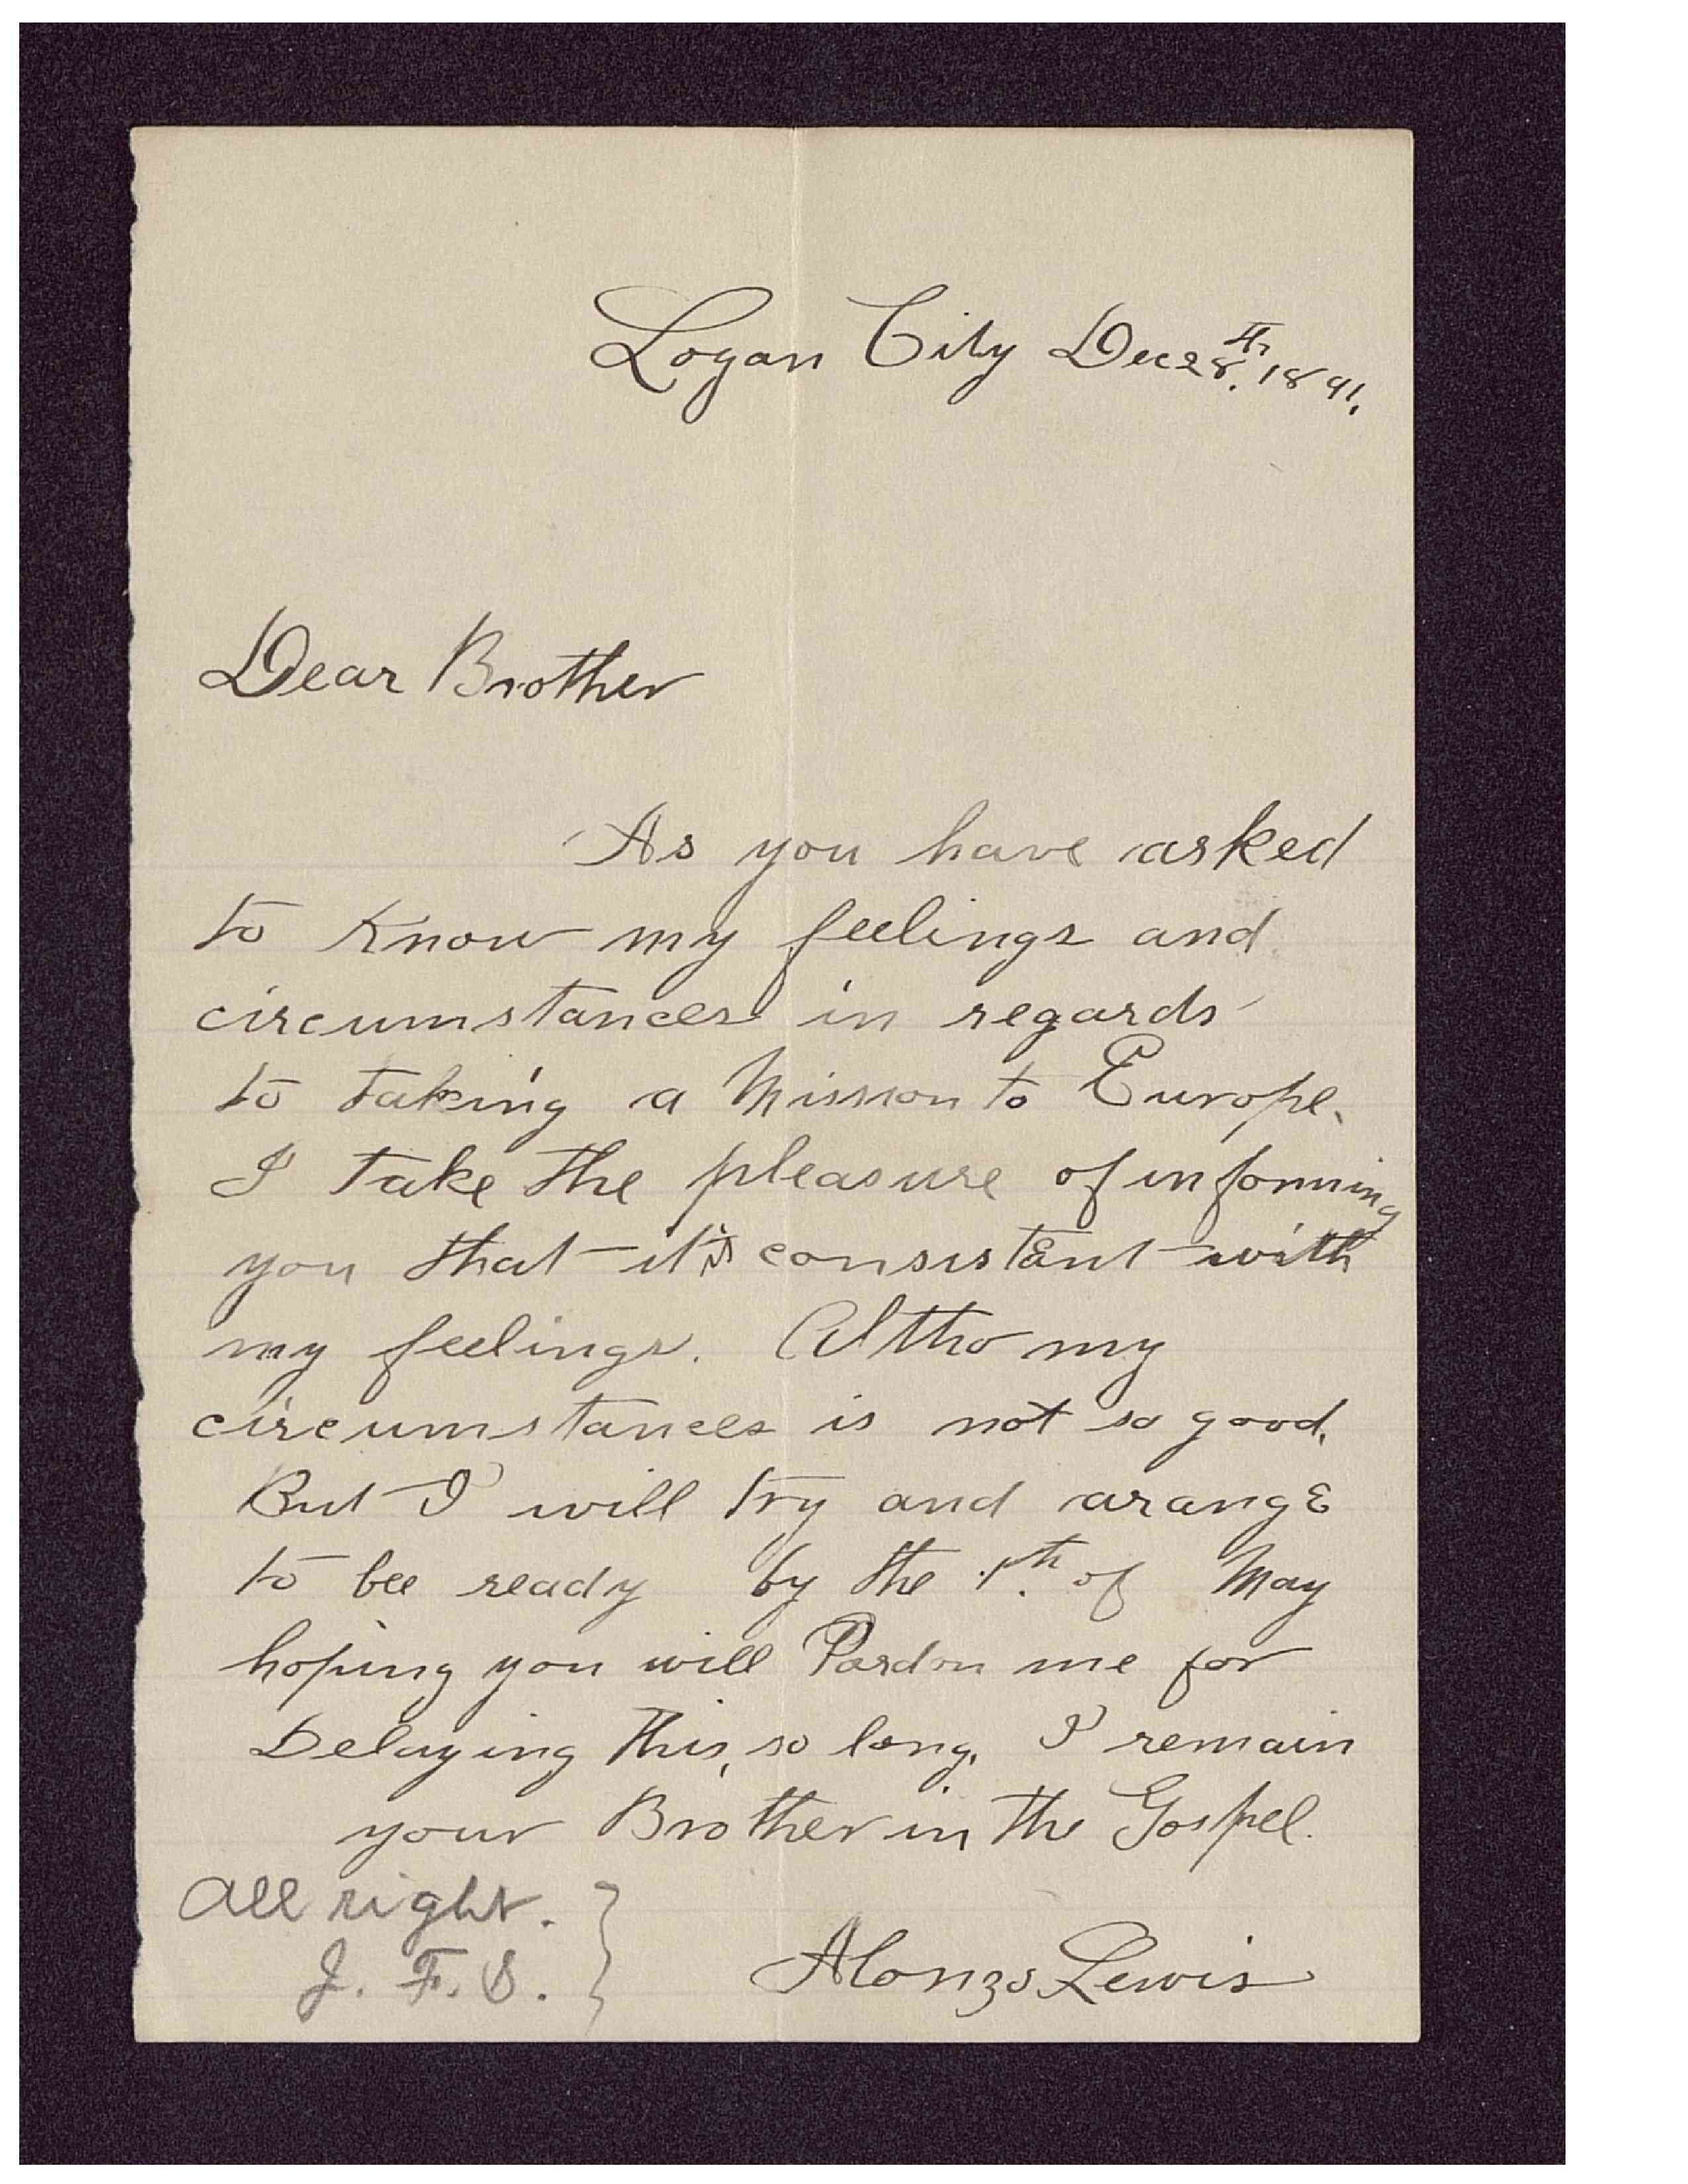 Logan City Dec 28.th 1891.
Dear Brother
As you have asked
to know my feelings and
circumstances in regards
to taking a Mission to Europe.
I take the pleasure of informing
you that it is consistent with
my feelings. Altho my
circumstances is not so good.
But I will try and arange
to bee ready by the 1th of May
hoping you will Pardon me for
Delaying this, so long. I remain
your Brother in the Gospel.
All right.
J. F. S.
Alonzo Lewis